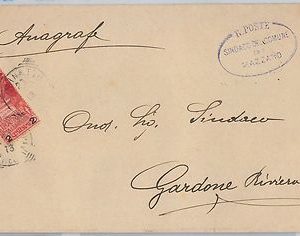 Anagrafe
R. POSTE
SINDACO DEL COMUNE
DI
MAZZANO
2 2
13
Sindaco
Gardone Riviera